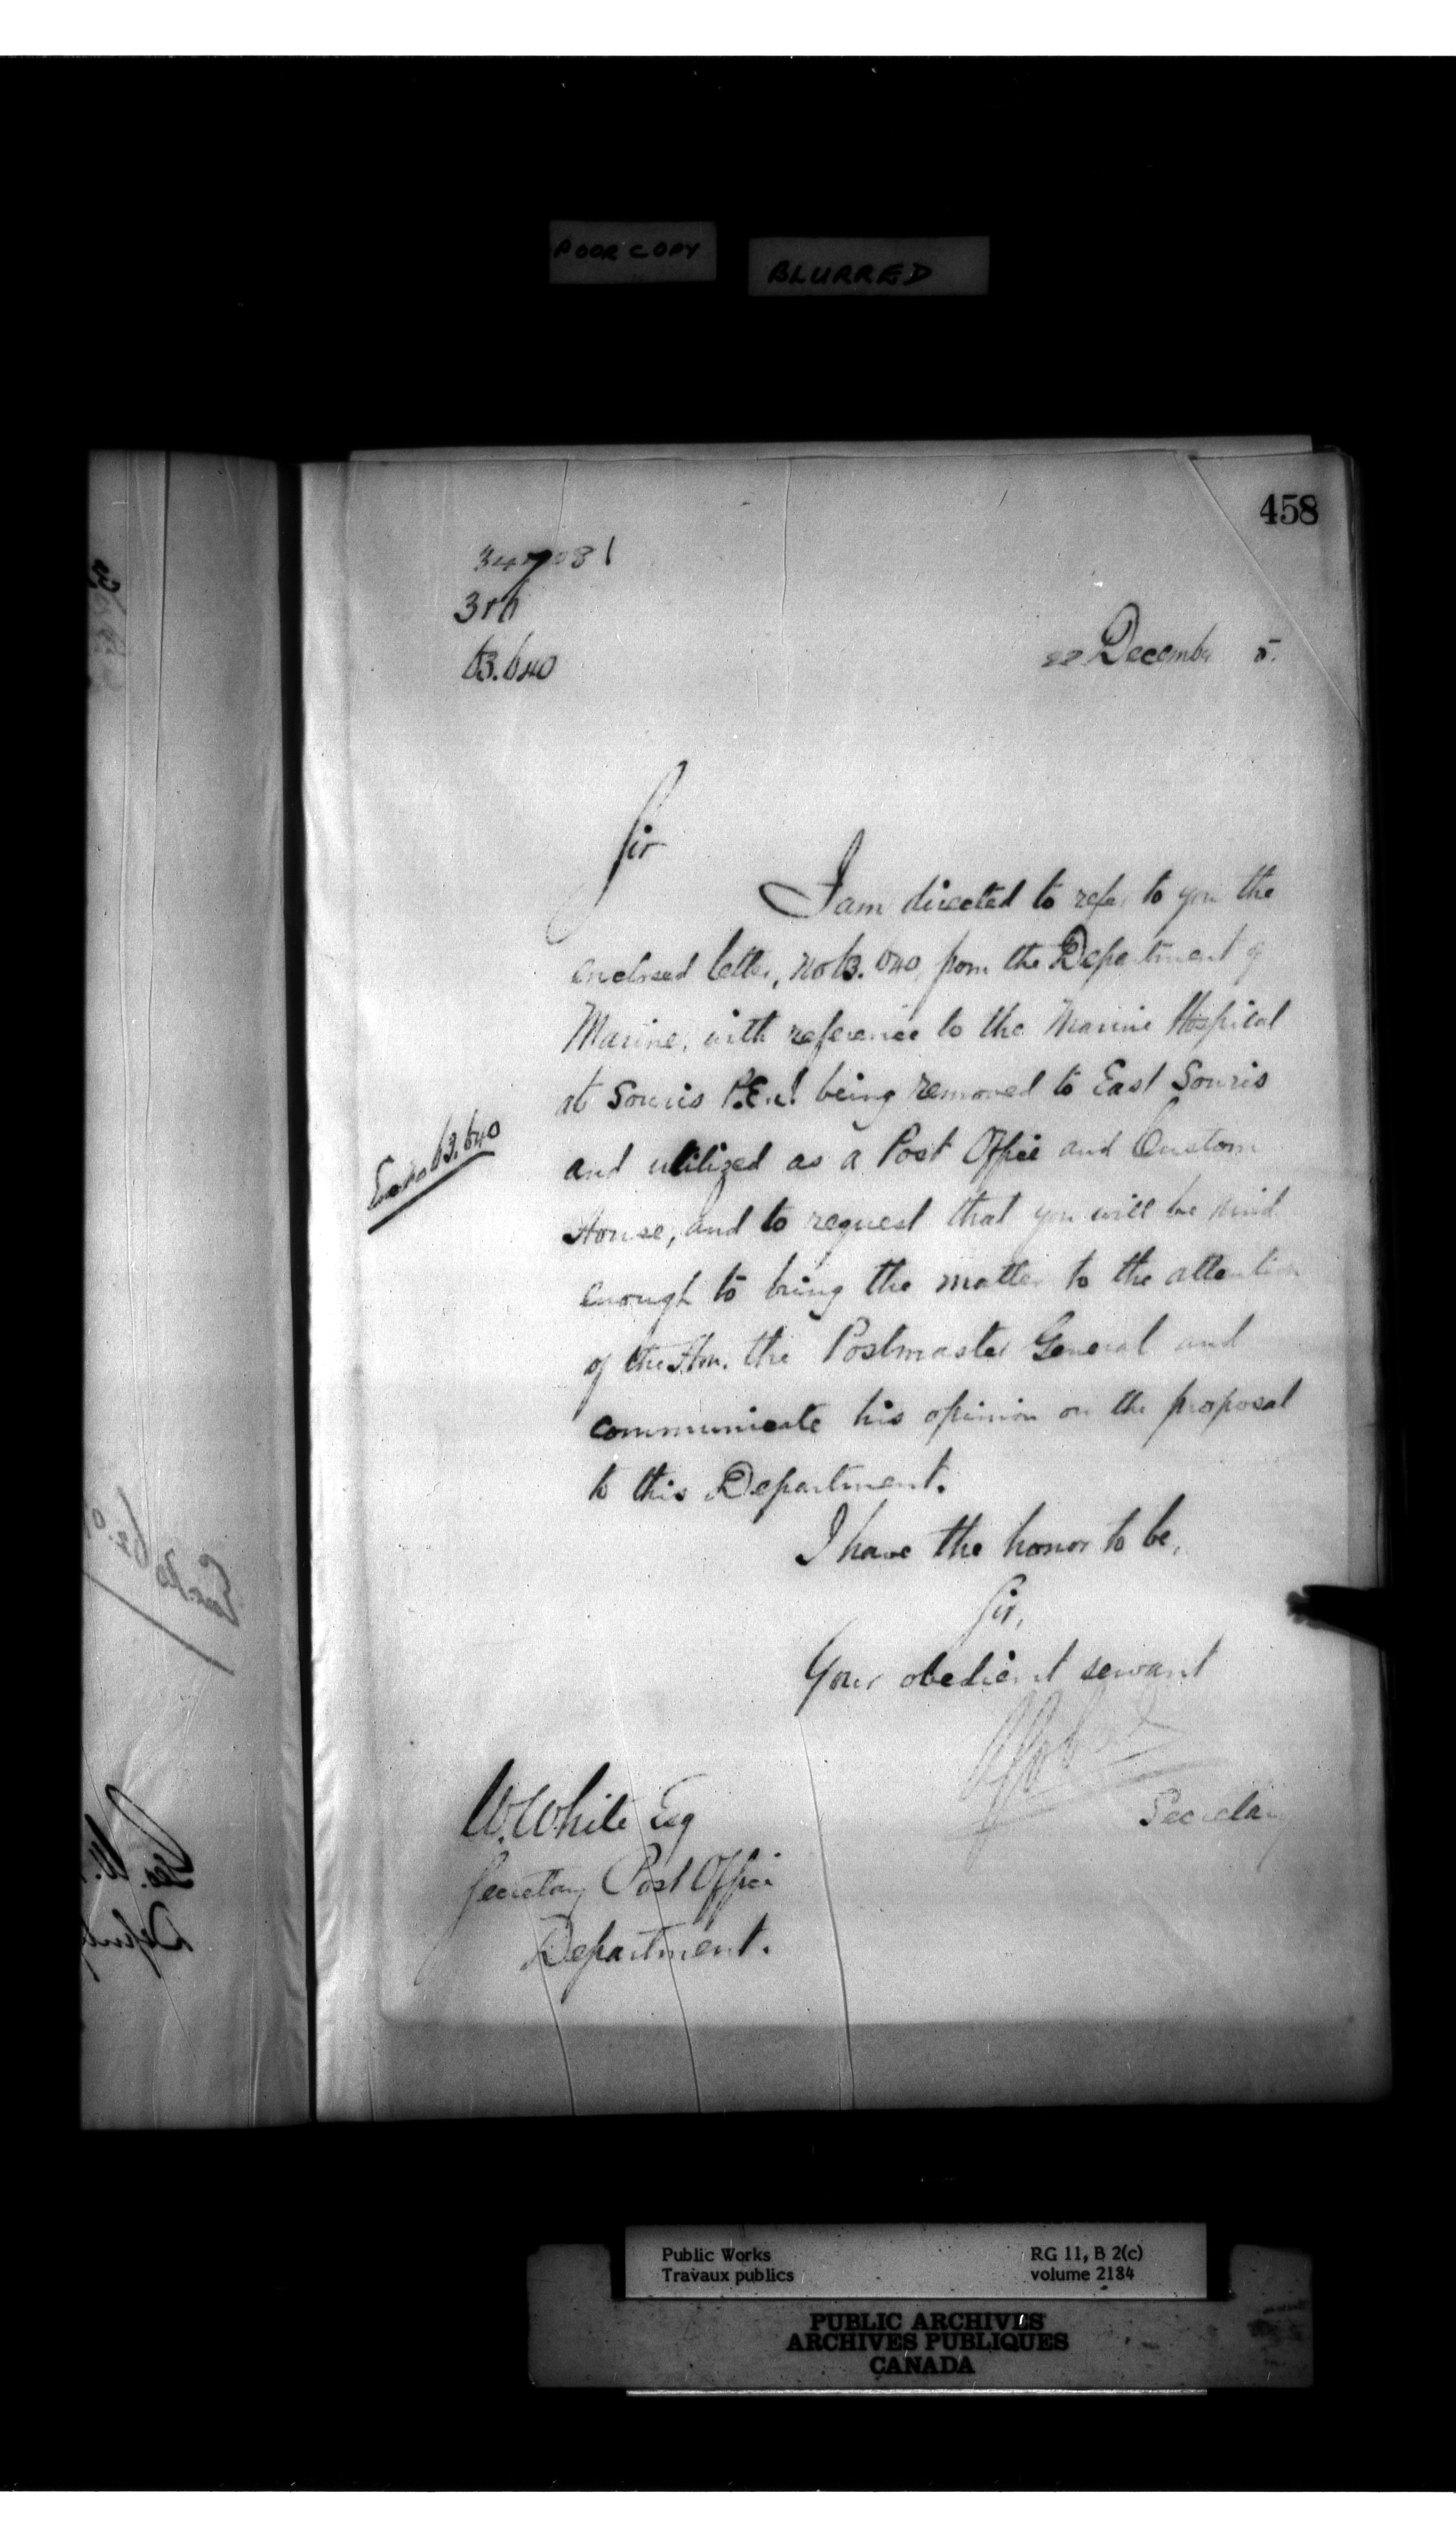 POOR COPY
BLURRED
458
63.640
22 December 5.
Sir
I am directed to refer to you the
enclosed letter, No 63.640, from the Department of
Marine, with reference to the Marine Hospital
at Souris P.E.I. being removed to East Souris
and utilized as a Post Office and Custom
House, and to request that you will be kind
enough to bring the matter to the attention
of the Hon. the Postmaster General and
communicate his opinion on the proposal
to this Department.
63.640
I have the honor to be,
Sir,
Your obedient servant
Secretary
W. White Esq
Secretary Post Office
Department.
Public Works
Travaux publics
RG 11, B 2(c)
volume 2184
PUBLIC ARCHIVES
ARCHIVES PUBLIQUES
CANADA